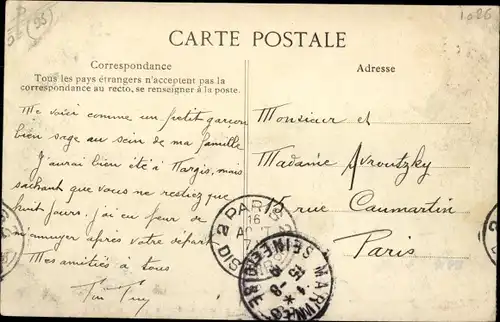 (95)
1026
CARTE POSTALE
Correspondance
Adresse
Tous les pays étrangers n'acceptent pas la
correspondance au recto, se renseigner à la poste.
Me voici comme un petit garçon
bien sage au sein de ma famille
J'aurai bien été à Nargis, mais
sachant que vous ne restiez que
huit jours, j'ai eu peur de
m'ennuyer après votre départ
Mes amitiés à tous
Monsieur et
Madame Avroutzky
rue Caumartin
Paris
2 PARIS 2
16
DIS
MARINES
SEINE-ET-OISE
4-8